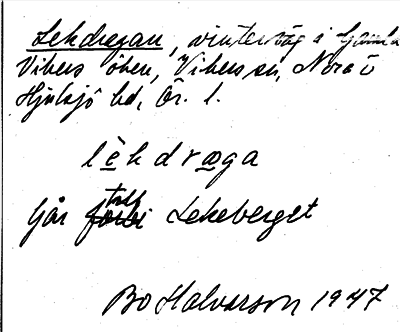 Lekdragan, vinterväg i Gamla
Vibers ö ben, Vibers sn, Nora o
Hjulsjö bd, Ör. l.
lèkdræga
Går till Lekeberget
Bo Halvarson 1947